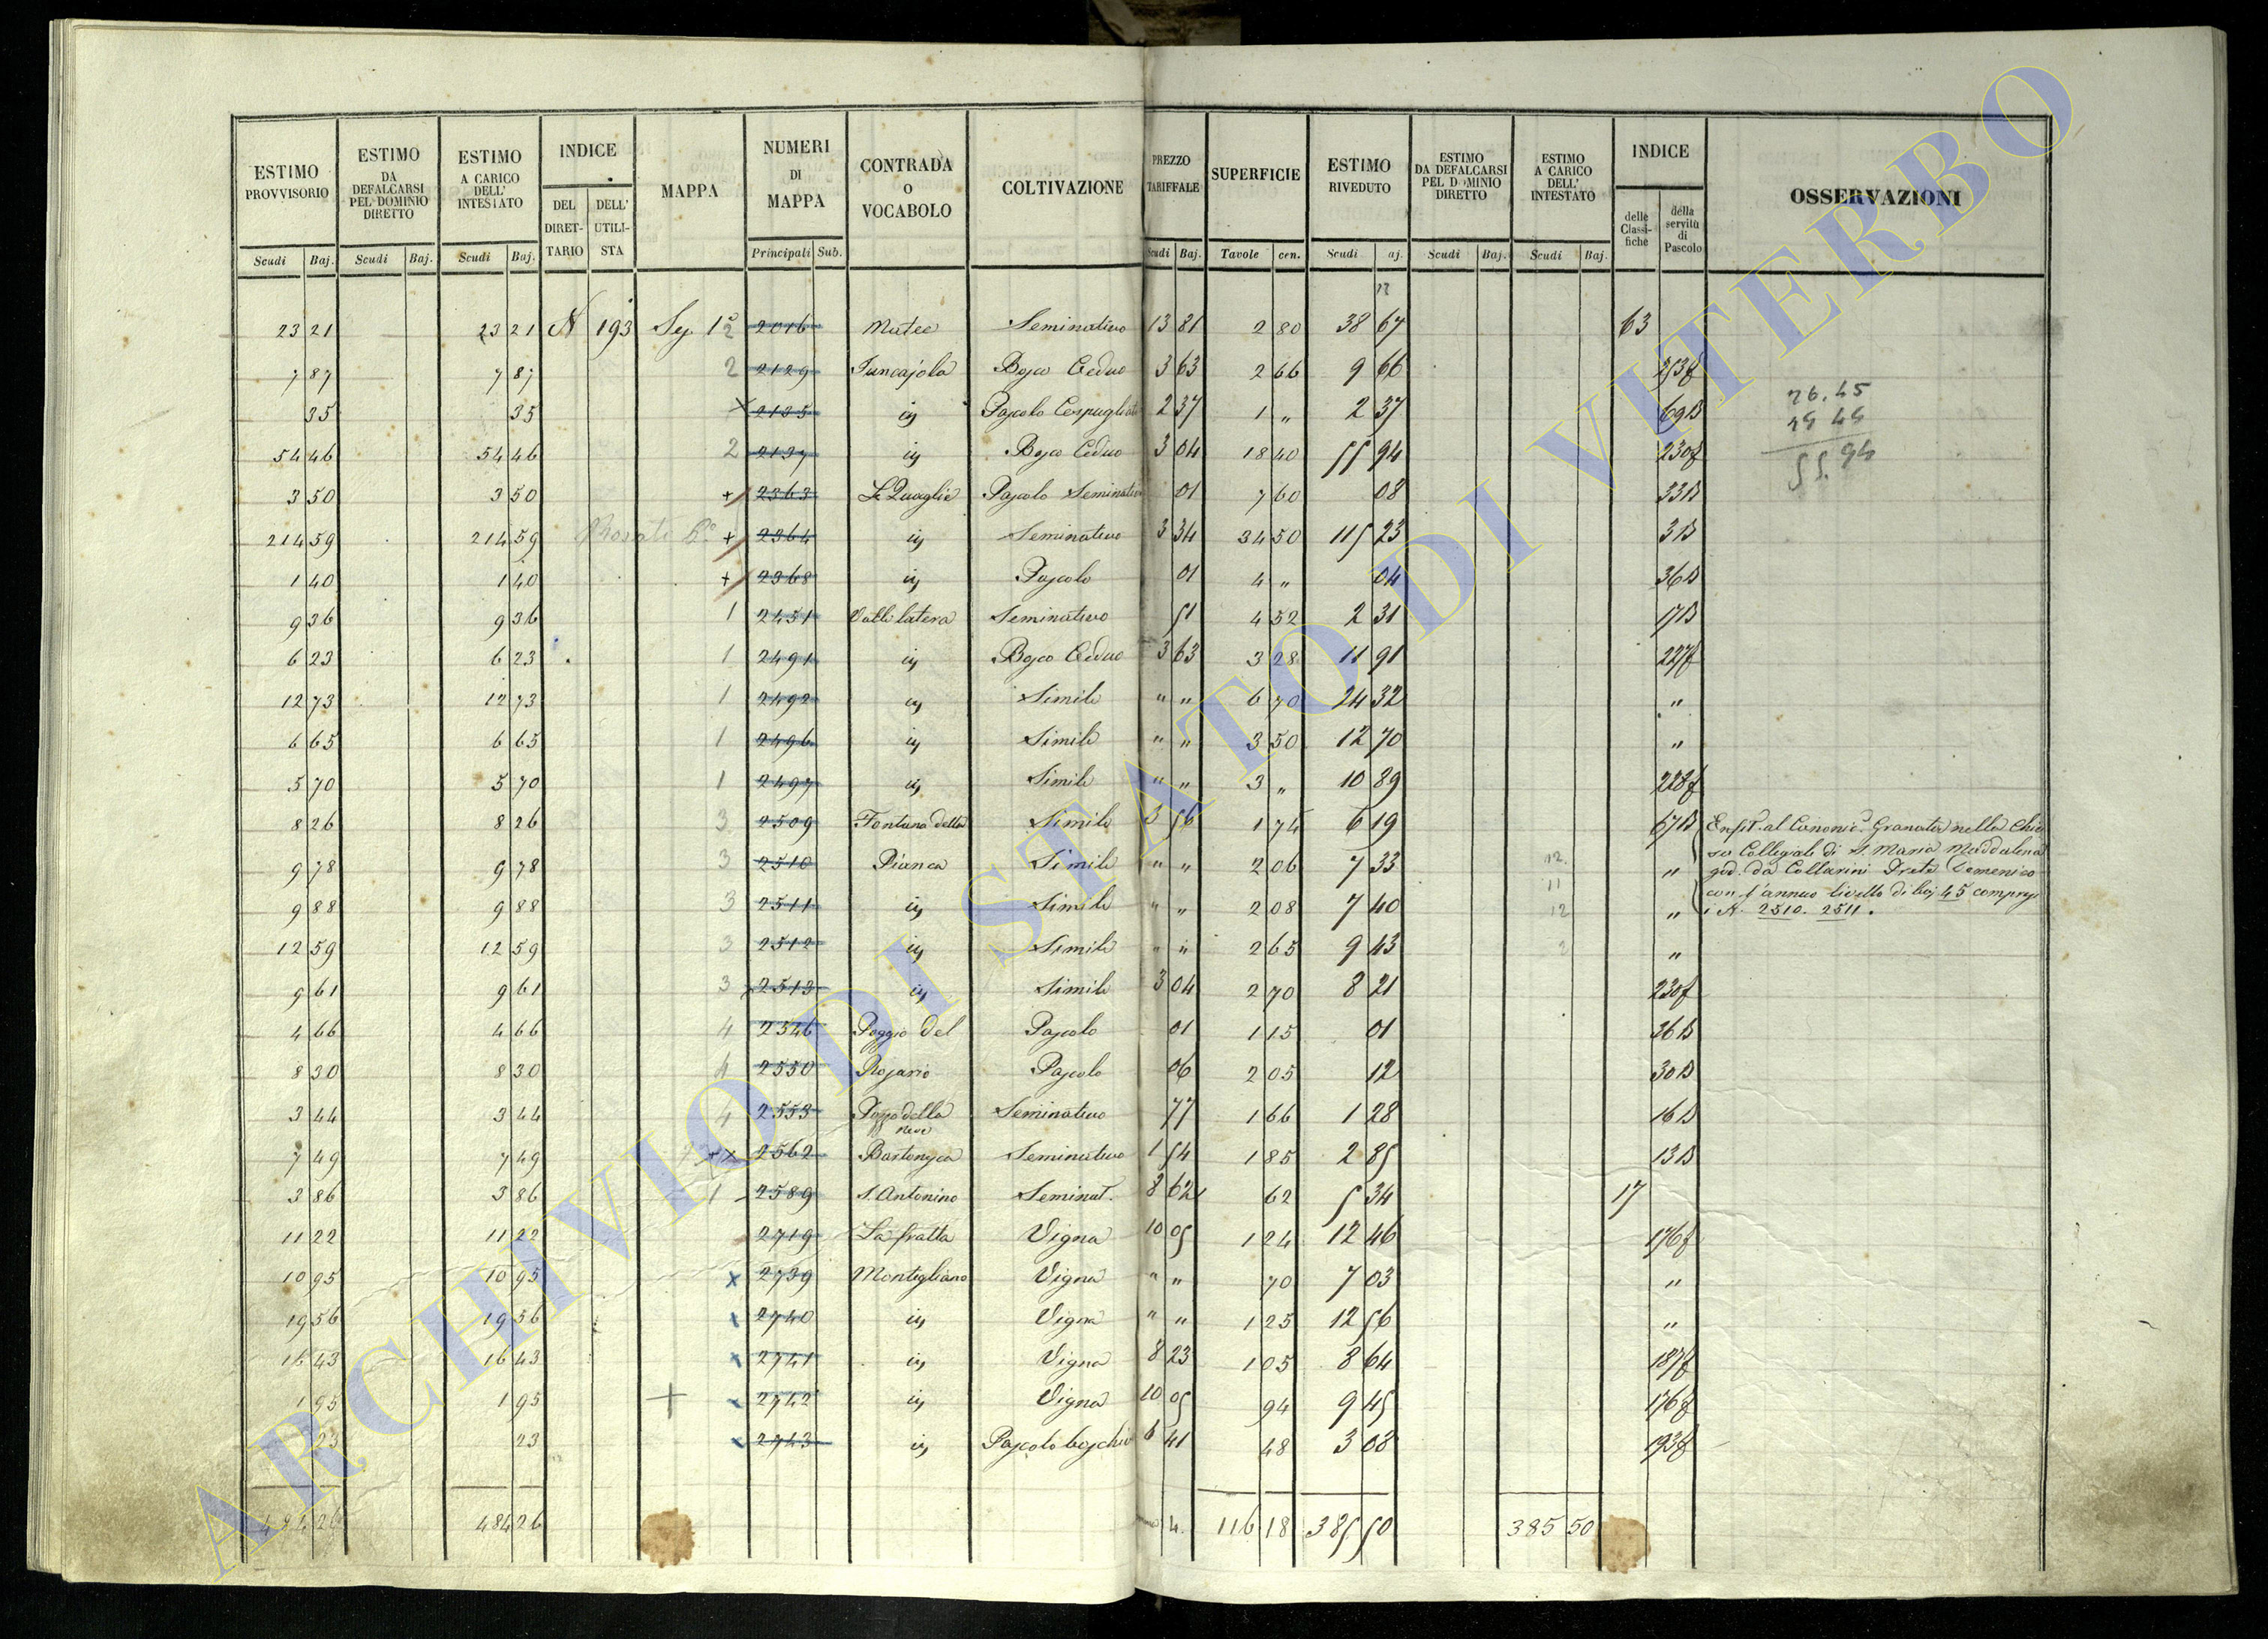 ESTIMO PROVVISORIO | ESTIMO DA DEFALCARSI PEL DOMINIO DIRETTO | ESTIMO A CARICO DELL' INTESTATO | INDICE DEL DIRETTARIO | DELL' UTILISTA | MAPPA | NUMERI DI MAPPA | CONTRADA O VOCABOLO | COLTIVAZIONE | PREZZO TARIFFALE | SUPERFICIE | ESTIMO RIVEDUTO | ESTIMO DA DEFALCARSI PEL DOMINIO DIRETTO | ESTIMO A CARICO DELL' INTESTATO | INDICE delle Classifiche | della servitù di Pascolo | OSSERVAZIONI
Scudi Baj. | Scudi Baj. | Scudi Baj. | Principali Sub. | Scudi Baj. | Tavole cen. | Scudi aj. | Scudi Baj. | Scudi Baj.
23 21 | 23 21 | N 193 | 2 | 2016 | Seminativo | 13 81 | 2 80 | 38 67 | 63
7 87 | 7 87 | 2 | 2129 | Juncajola | Bosco Ceduo | 3 63 | 2 66 | 9 66
35 | 35 | 2135 | iy | Pascolo Cespugliato | 2 37 | 1 " | 2 37 | 69B | 26.45
54 46 | 54 46 | 2 | 2137 | iy | Bosco Ceduo | 3 04 | 18 40 | 55 94 | 230f | 55.94
3 50 | 3 50 | + | 2363 | Le Quaglie | Pascolo Seminativo | 01 | 7 60 | 08 | 33B
214 59 | 214 59 | + | 2364 | iy | Seminativo | 3 34 | 34 50 | 115 23 | 3B
1 40 | 1 40 | + | 2368 | iy | Pascolo | 01 | 4 " | 04 | 36B
9 36 | 9 36 | 1 | 2451 | Valle latera | Seminativo | 51 | 4 52 | 2 31 | 17B
6 23 | 6 23 | 1 | 2491 | iy | Bosco Ceduo | 3 63 | 3 28 | 11 91 | 227f
12 73 | 12 73 | 1 | 2492 | iy | Simile | " " | 6 70 | 24 32 | "
6 65 | 6 65 | 1 | 2496 | iy | Simile | " " | 3 50 | 12 70 | "
5 70 | 5 70 | 1 | 2497 | iy | Simile | " " | 3 " | 10 89 | 228f
8 26 | 8 26 | 3 | 2509 | Fontana della | Simile | 3 56 | 1 74 | 6 19 | 67B | Enfit. al Canonic.º Granata nella Chie
9 78 | 9 78 | 3 | 2510 | Bianca | Simile | " " | 2 06 | 7 33 | " | sa Collegiale di S. Maria Maddalena
god. da Collarini Prete Domenico
con l'annuo livello di baj 45 compresi
9 88 | 9 88 | 3 | 2511 | iy | Simile | " " | 2 08 | 7 40 | " | i N. 2510. 2511.
12 59 | 12 59 | 3 | 2512 | iy | Simile | " " | 2 65 | 9 43 | "
9 61 | 9 61 | 3 | 2513 | iy | Simile | 3 04 | 2 70 | 8 21 | 230f
4 66 | 4 66 | 4 | 2546 | Poggio del | Pascolo | 01 | 1 15 | 01 | 36B
8 30 | 8 30 | 4 | 2550 | Rosario | Pascolo | 06 | 2 05 | 12 | 30B
3 44 | 3 44 | 4 | 2553 | Pozzo della neve | Seminativo | 77 | 1 66 | 1 28 | 16B
7 49 | 7 49 | 2562 | Seminativo | 1 54 | 1 85 | 2 85 | 13B
3 86 | 3 86 | 1 | 2589 | S. Antonino | Seminat. | 8 62 | 62 | 5 34 | 17
11 22 | 11 22 | 2719 | La fratta | Vigna | 10 05 | 1 24 | 12 46 | 176f
10 95 | 10 95 | x | 2739 | Montigliano | Vigna | " " | 70 | 7 03 | "
19 56 | 19 56 | x | 2740 | iy | Vigna | " " | 1 25 | 12 56 | "
16 43 | 16 43 | x | 2741 | iy | Vigna | 8 23 | 1 05 | 8 64 | 187f
1 95 | 1 95 | + | 2742 | iy | Vigna | 10 05 | 94 | 9 45 | 176f
23 | 23 | 2743 | iy | Pascolo boschivo | 6 41 | 48 | 3 08 | 193f
484 26 | 116 18 | 385 50 | 385 50
ARCHIVIO DI STATO DI VITERBO